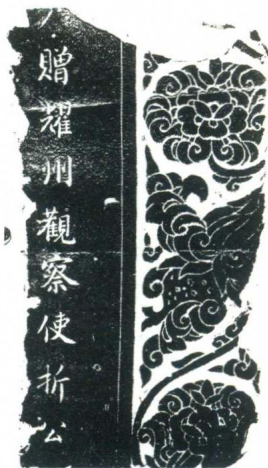 贈耀州觀察使折公